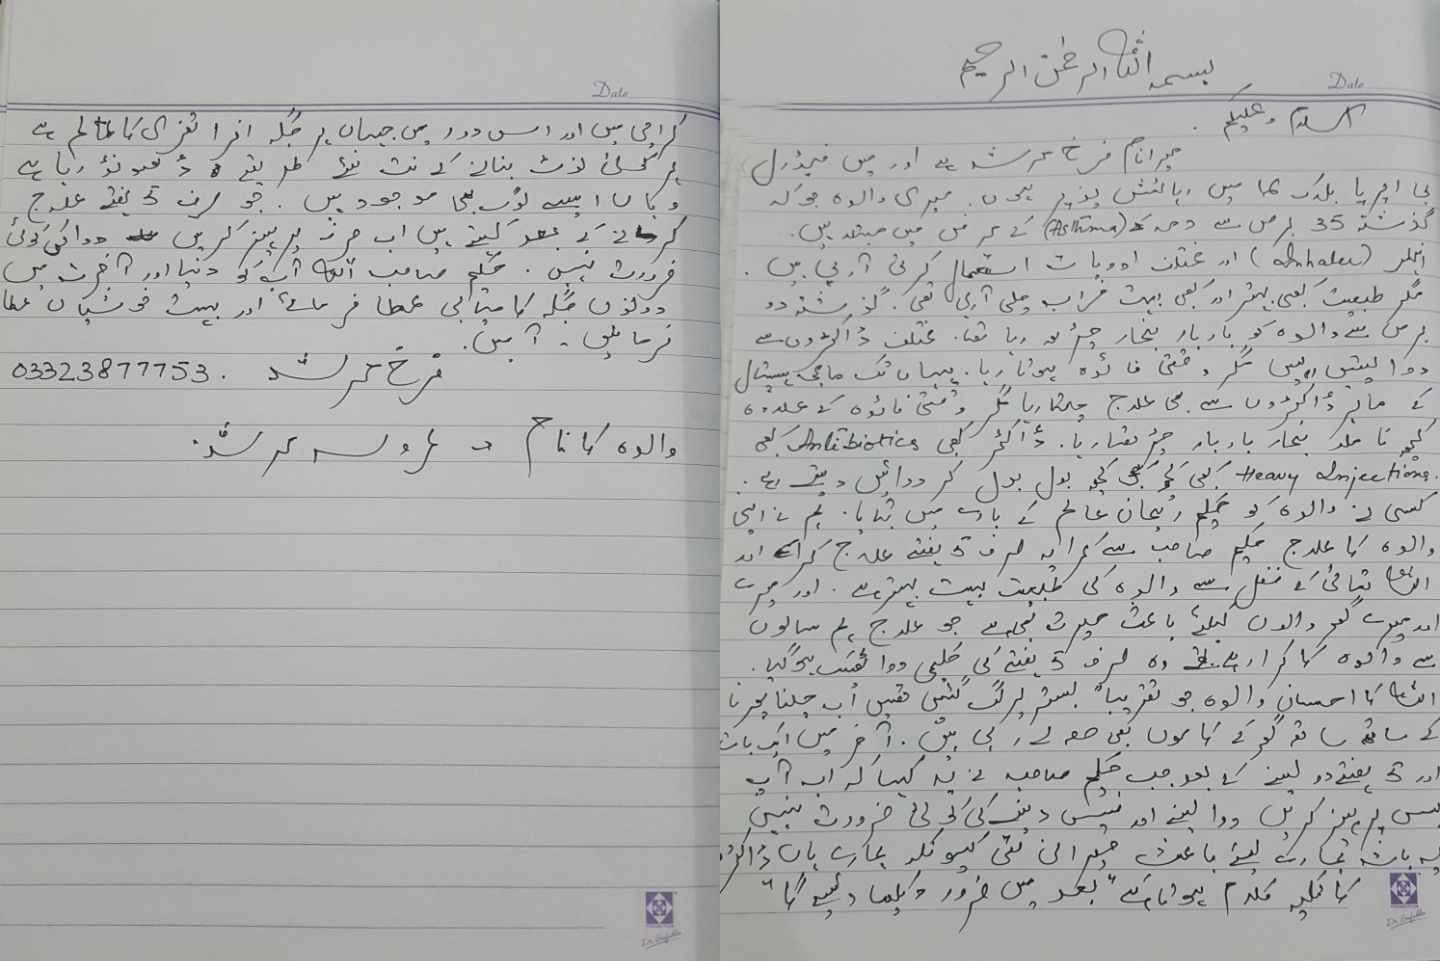 Date
بسمہ اللہ الرحمٰن الرحیم
السلام وعلیکم .
میرا نام فرخ مرشد ہے اور میں فیڈرل
بی ایریا بلاک میں رہائش پذیر ہوں. میری والدہ جو کہ
گذشتہ 35 برس سے دمہ (Asthma) کے مرض میں مبتلا ہیں.
انہیلر (Inhaler) اور مختلف ادویات استعمال کرتی آرہی ہیں .
مگر طبیعت کبھی بہتر اور کبھی بہت خراب چلی آرہی تھی. گذشتہ دو
برس سے والدہ کو بار بار بخار چڑھ رہا تھا. مختلف ڈاکٹروں سے
دوا لیتیں رہیں مگر وقتی فائدہ ہوتا رہا. یہاں تک ہسپتال
کے ماہر ڈاکٹروں سے بھی علاج چلتا رہا مگر وقتی فائدہ کے علاوہ
کچھ نا ملا بخار بار بار چڑھتا رہا. ڈاکٹر کبھی Antibiotics کبھی
Heavy Injections. کبھی کچھ کبھی کچھ بول بول کر دوائیں دیتے رہے .
کسی نے والدہ کو حکیم ریحان عالم کے بارے میں بتایا. ہم نے اپنی
والدہ کا علاج حکیم صاحب سے کرایا صرف 5 ہفتے علاج کرا کے اور
اللہ تعالیٰ کے فضل سے والدہ کی طبیعت بہت بہتر ہے . اور میرے
اور میرے گھر والوں کیلئے باعث حیرت بھی ہے جو علاج ہم سالوں
سے والدہ کا کرا رہے تھے وہ صرف 5 ہفتے کی حکیمی دوا ٹھیک ہوگیا.
اللہ کا احسان والدہ جو تقریباً بستر پر لگ گئی تھیں اب چلنا پھرنا
کے ساتھ ساتھ گھر کے کاموں بھی حصہ لے رہی ہیں . آخر میں ایک بات
اور 5 ہفتے دوا لینے کے بعد جب حکیم صاحب نے یہ کہا کہ اب آپ
بس پرہیز کریں دوا لینے اور فیس دینے کی کوئی ضرورت نہیں
یہ بات ہمارے لیئے باعث حیرانی تھی کیونکہ ہمارے ہاں ڈاکٹروں
کا تکیہ کلام ہوتا ہے "بعد میں ضرور دکھا دیجیے گا"
Date
کراچی میں اور اس دور میں جہاں ہر جگہ افرا تفری کا عالم ہے
ہر کوئی نوٹ بنانے کے نت نئے طریقے ڈھونڈ رہا ہے
وہاں ایسے لوگ بھی موجود ہیں . جو صرف 5 ہفتے علاج
کرنے کے بعد کہتے ہیں اب صرف پرہیز کریں دوا کی کوئی
ضرورت نہیں . حکیم صاحب اللہ آپ کو دنیا اور آخرت میں
دونوں جگہ کامیابی عطا فرمائے اور بہت خوشیاں عطا
فرمائیں - آمین.
فرخ مرشد . 03323877753
والدہ کا نام = عروسہ مرشد.